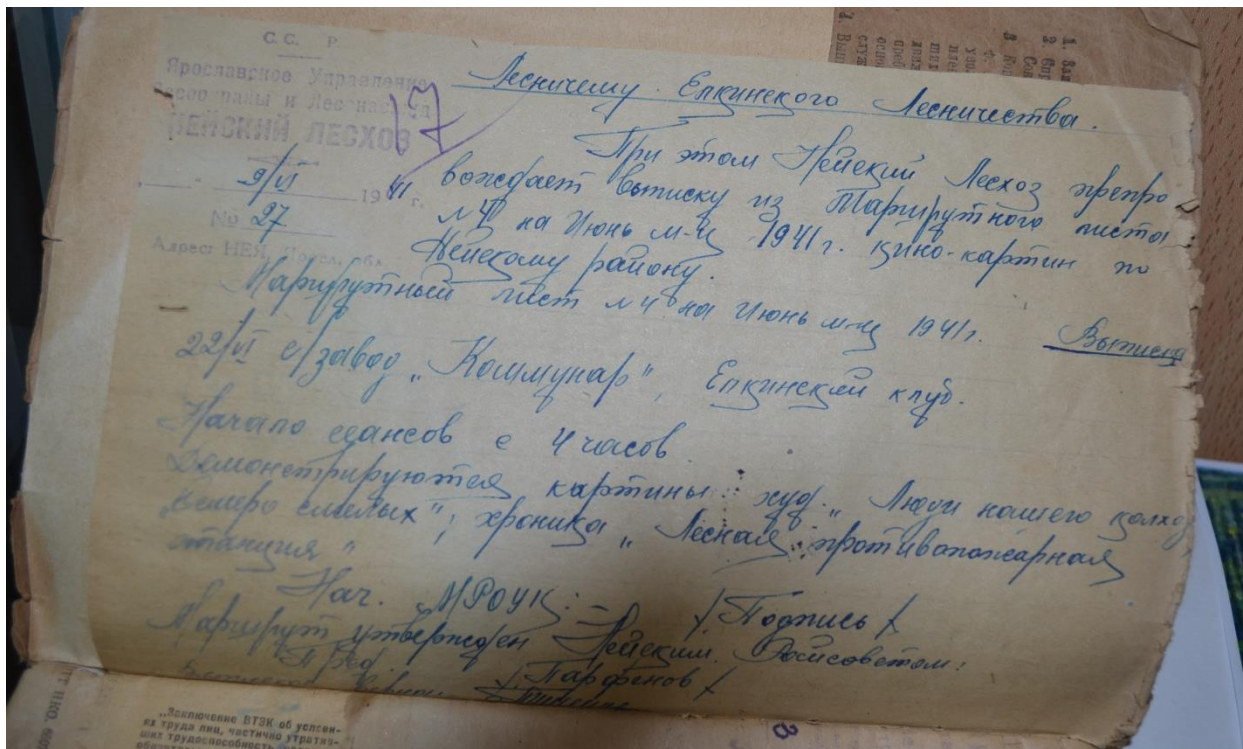 С.С. Р
Ярославское Управление
Лесоохраны и Лесонасажд
НЕЙСКИЙ ЛЕСХОЗ
17
9/VI 1941 г.
№ 27
Адрес: НЕЯ, Яросл. обл.
Лесничему Елкинского Лесничества.
При этом Нейский Лесхоз препро
вождает выписку из Маршрутного листа
№ 4 на Июнь м-ц 1941 г. кино-картин по
Нейскому району.
Выписка
Маршрутный лист № 4 на Июнь м-ц 1941 г.
22/VI с/завод „Коммунар", Елкинский клуб.
Начало сеансов с 4 часов
Демонстрируются картины: худ. „Люди нашего колхо
„Семеро смелых"; хроника „Лесная противопожарная
станция"
Нач. МРОУК: – /Подпись/
Маршрут утвержден Нейским Райсоветом:
Пред. /Парфенов/
„Заключение ВТЭК об услови-
ях труда лиц, частично утратив-
ших трудоспособность
3